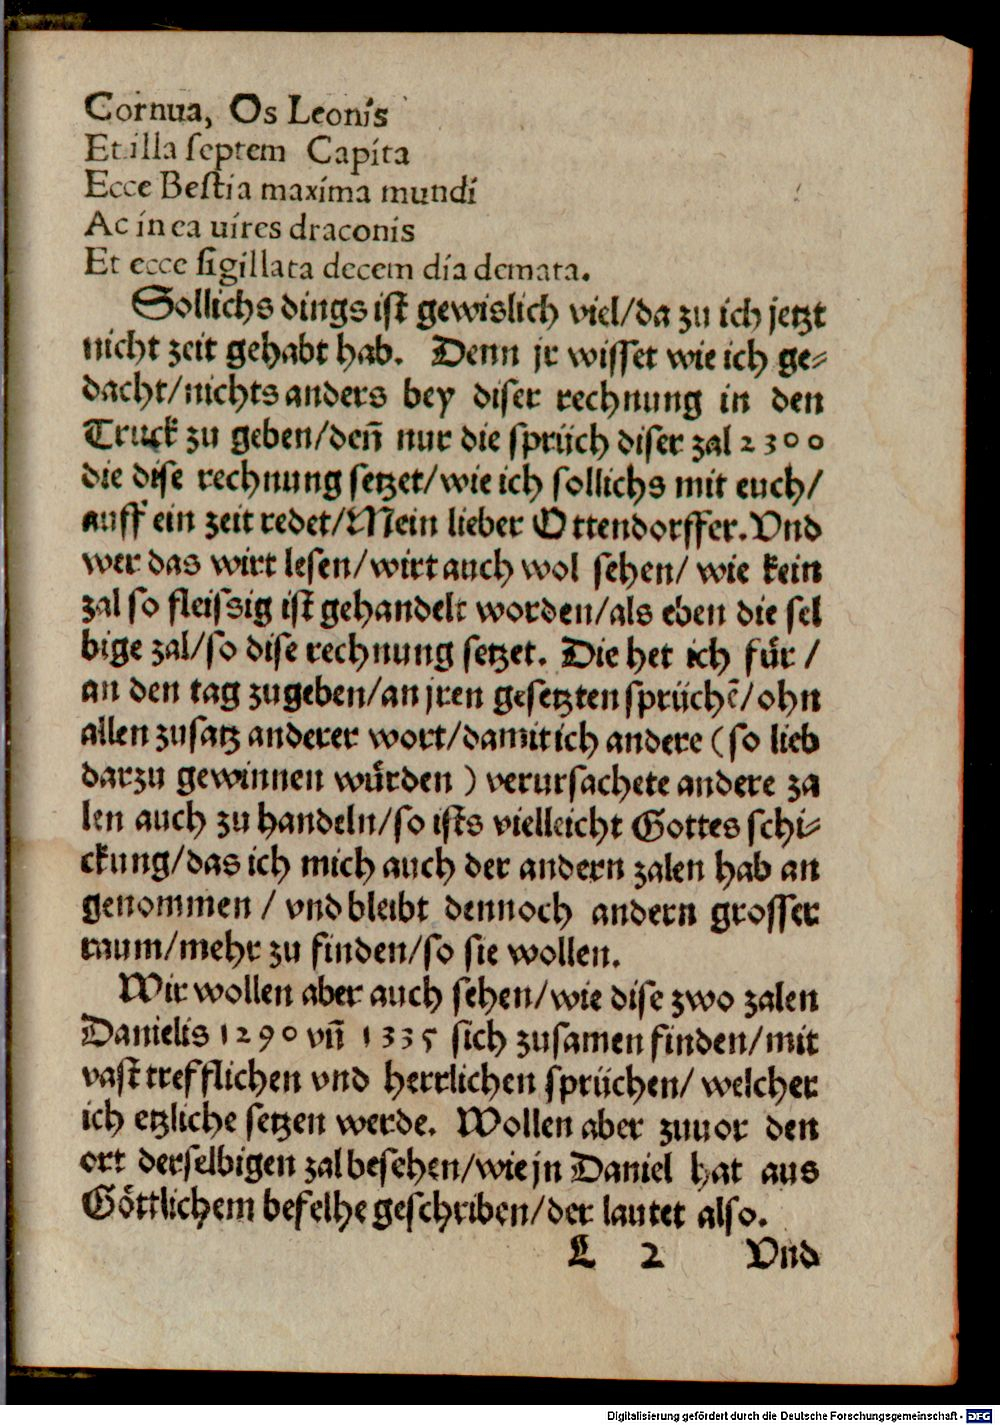 Cornua, Os Leonis
Et illa ſeptem Capita
Ecce Beſtia maxima mundi
Ac in ea uires draconis
Et ecce ſigillata decem dia demata.
Sollichs dings iſt gewislich viel/da zu ich jetzt
nicht zeit gehabt hab. Denn jr wiſſet wie ich ge⸗
dacht/nichts anders bey diſer rechnung in den
Truck zu geben/deñ nur die ſprüch diſer zal 2300
die diſe rechnung ſetzet/wie ich ſollichs mit euch/
auff ein zeit redet/Mein lieber Ottendorffer. Vnd
wer das wirt leſen/wirt auch wol ſehen/ wie kein
zal ſo fleiſsig iſt gehandelt worden/als eben die ſel
bige zal/ſo diſe rechnung ſetzet. Die het ich fuͤr /
an den tag zugeben/an jren geſetzten ſprüchē/ohn
allen zuſatz anderer wort/damit ich andere (ſo lieb
darzu gewinnen wuͤrden ) verurſachete andere za
len auch zu handeln/ſo iſts vielleicht Gottes ſchi⸗
ckung/das ich mich auch der andern zalen hab an
genommen / vnd bleibt dennoch andern groſſer
raum/mehr zu finden/ſo ſie wollen.
Wir wollen aber auch ſehen/wie diſe zwo zalen
Danielis 1290 vñ 1335 ſich zuſamen finden/mit
vaſt trefflichen vnd herrlichen ſprüchen/ welcher
ich etzliche ſetzen werde. Wollen aber zuuor den
ort derſelbigen zal beſehen/wie jn Daniel hat aus
Goͤttlichem befelhe geſchriben/der lautet alſo.
L 2 Vnd
Digitalisierung gefördert durch die Deutsche Forschungsgemeinschaft - DFG